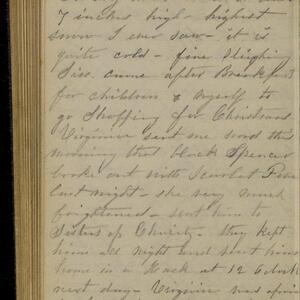 7 inches high - highest
snow I ever saw - it is
quite cold - fine sleighing
Siss. came after Breakfast
for children & myself to
go Shopping for Christmas
Virginia sent me word this
morning that black Spencer
broke out with Scarlet Fever
last night - she very much
frightened - sent him to
Sisters of Charity - they kept
him all night and sent him
home in a Hack at 12 Oclock
next day - Virginia was